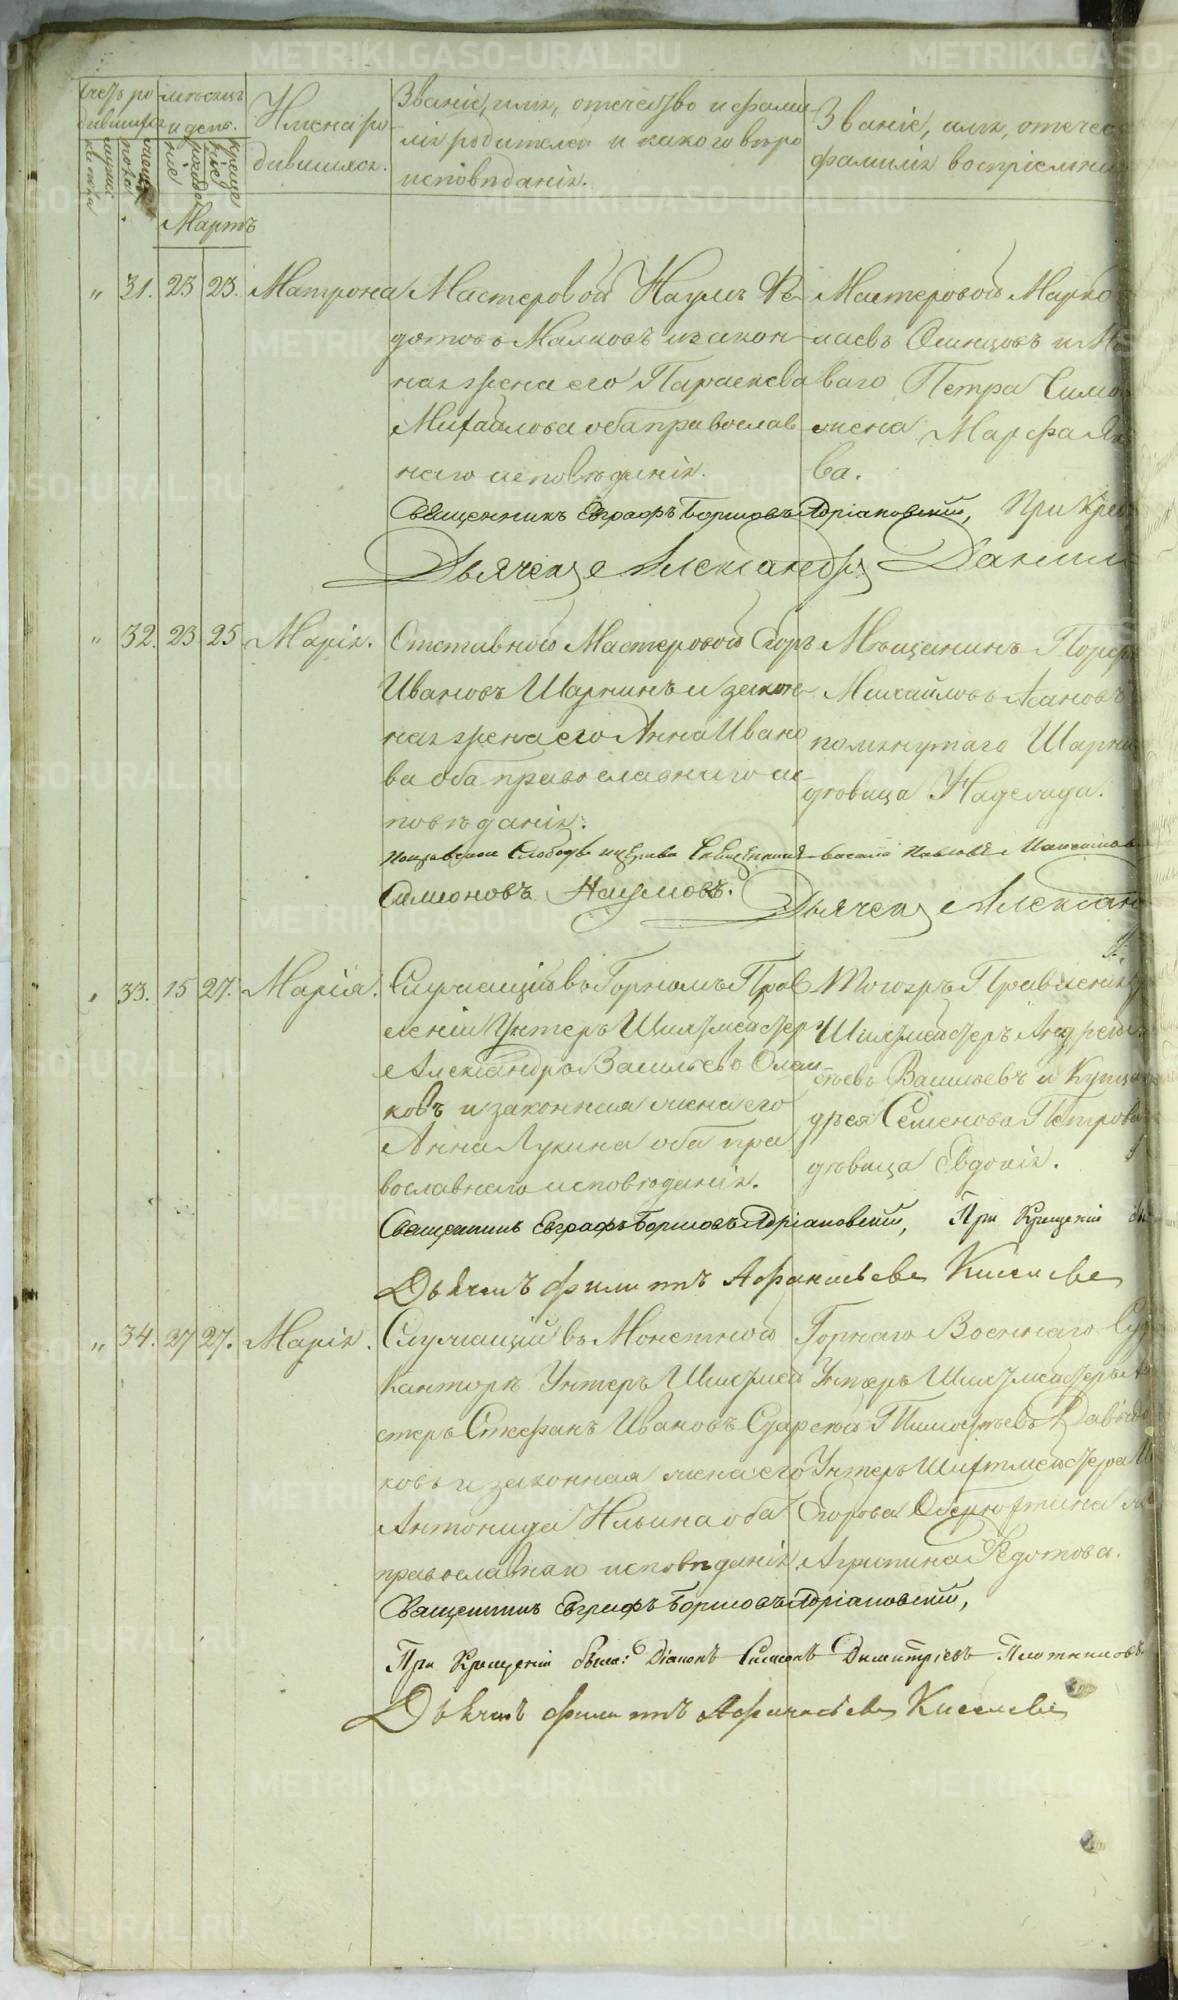 Счетъ ро
дившихся
мужеска
пола.
женска
Мѣсяцъ
и день.
рожде
нія
креще
нія
Имена ро
дившихся.
Званіе, имя, отечество и фами
лія родителей и какого вѣро
исповѣданія.
Званіе, имя, отечес
фамилія воспріемни
Мартъ
" 31. 23 23. Матрона
Мастеровой Наумъ Ѳе
дотовъ Малковъ и закон
ная жена его Параскева
Михайлова оба православ
наго исповѣданія.
Мастеровой Марко
лаевъ Осинцовъ и М
ваго Петра Симо
жена Марфа Як
ва.
Священникъ Евграфъ Борисовъ Адріановскій, При Крещ
Дьячекъ Александръ Данил
" 32. 23 25 Марія.
Отставной Мастеровой Егоръ
Ивановъ Шарнинъ и закон
ная жена его Анна Ивано
ва оба православнаго ис
повѣданія.
Мѣщанинъ Порф
Михайловъ Пановъ
помянутаго Шарни
дѣвица Надежда.
Слободы церкви Священникъ Василій Павловъ
Симеоновъ Наумовъ.
Дьячекъ Александ
" 33. 15 27. Марія.
Служащій въ Горномъ Прав
леніи Унтеръ Шихтмейстеръ
Александръ Васильевъ
ковъ и законная жена его
Анна Лукина оба пра
вославнаго исповѣданія.
Тогожъ Правленія
Шихтмейстеръ Андрей
Васильевъ и Купца
дрея Семенова Петрова
дѣвица Евдокія.
Священникъ Евграфъ Борисовъ Адріановскій, При Крещеніи бы
Дьячекъ Филиппъ Афанасьевъ Киселевъ
" 34. 27 27. Марія.
Служащій въ Монетной
Канторѣ Унтеръ Шихтмей
стеръ Стефанъ Ивановъ Сударе
ковъ и законная жена его
Антонида Ильина оба
православнаго исповѣданія.
Горнаго Военнаго Суд
Унтеръ Шихтмейстеръ
Тимофѣевъ Давыдо
Унтеръ Шихтмейстера
Егорова Оберюхтина
Агрипина Ѳедотова.
Священникъ Евграфъ Борисовъ Адріановскій,
При Крещеніи былъ: Діаконъ Симеонъ Димитріевъ Плотниковъ
Дьячекъ Филиппъ Афанасьевъ Киселевъ
METRIKI.GASO-URAL.RU